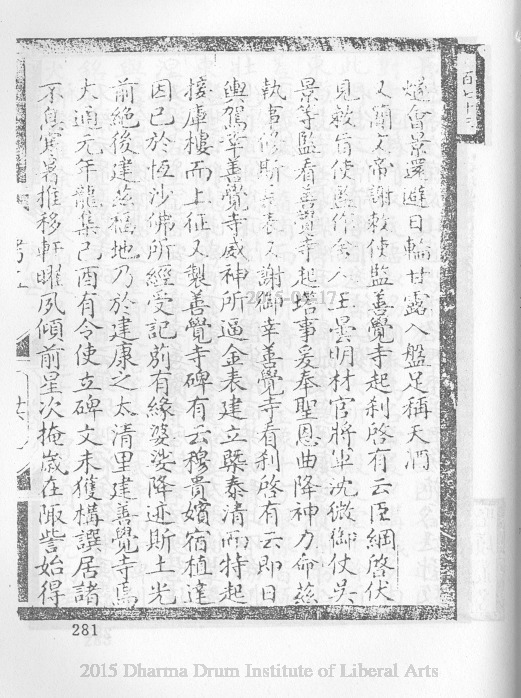 百七十三
燧會景還避日輪甘露入盤足稱天酒
又簡文帝謝敕使監善覺寺起刹啓有云臣綱啓伏
見敕旨使監作舍人王曇明材官將軍沈微御仗吳
景等監看善覺寺起塔事爰奉聖恩曲降神力命茲
執事脩斯寺表又謝御幸善覺寺看刹啓有云即日
輿駕幸善覺寺威神所逼金表建立槩泰清而特起
接庫樓而上征又製善覺寺碑有云穆貴嬪宿植達
因已於恆沙佛所經受記莂有緣婆娑降迹斯土光
前絕後建茲福地乃於建康之太清里建善覺寺焉
大通元年龍集己酉有令使立碑文未獲構譔居諸
不息寒暑推移軒曜夙傾前星次掩歲在陬訾始得
281
2015 Dharma Drum Institute of Liberal Arts